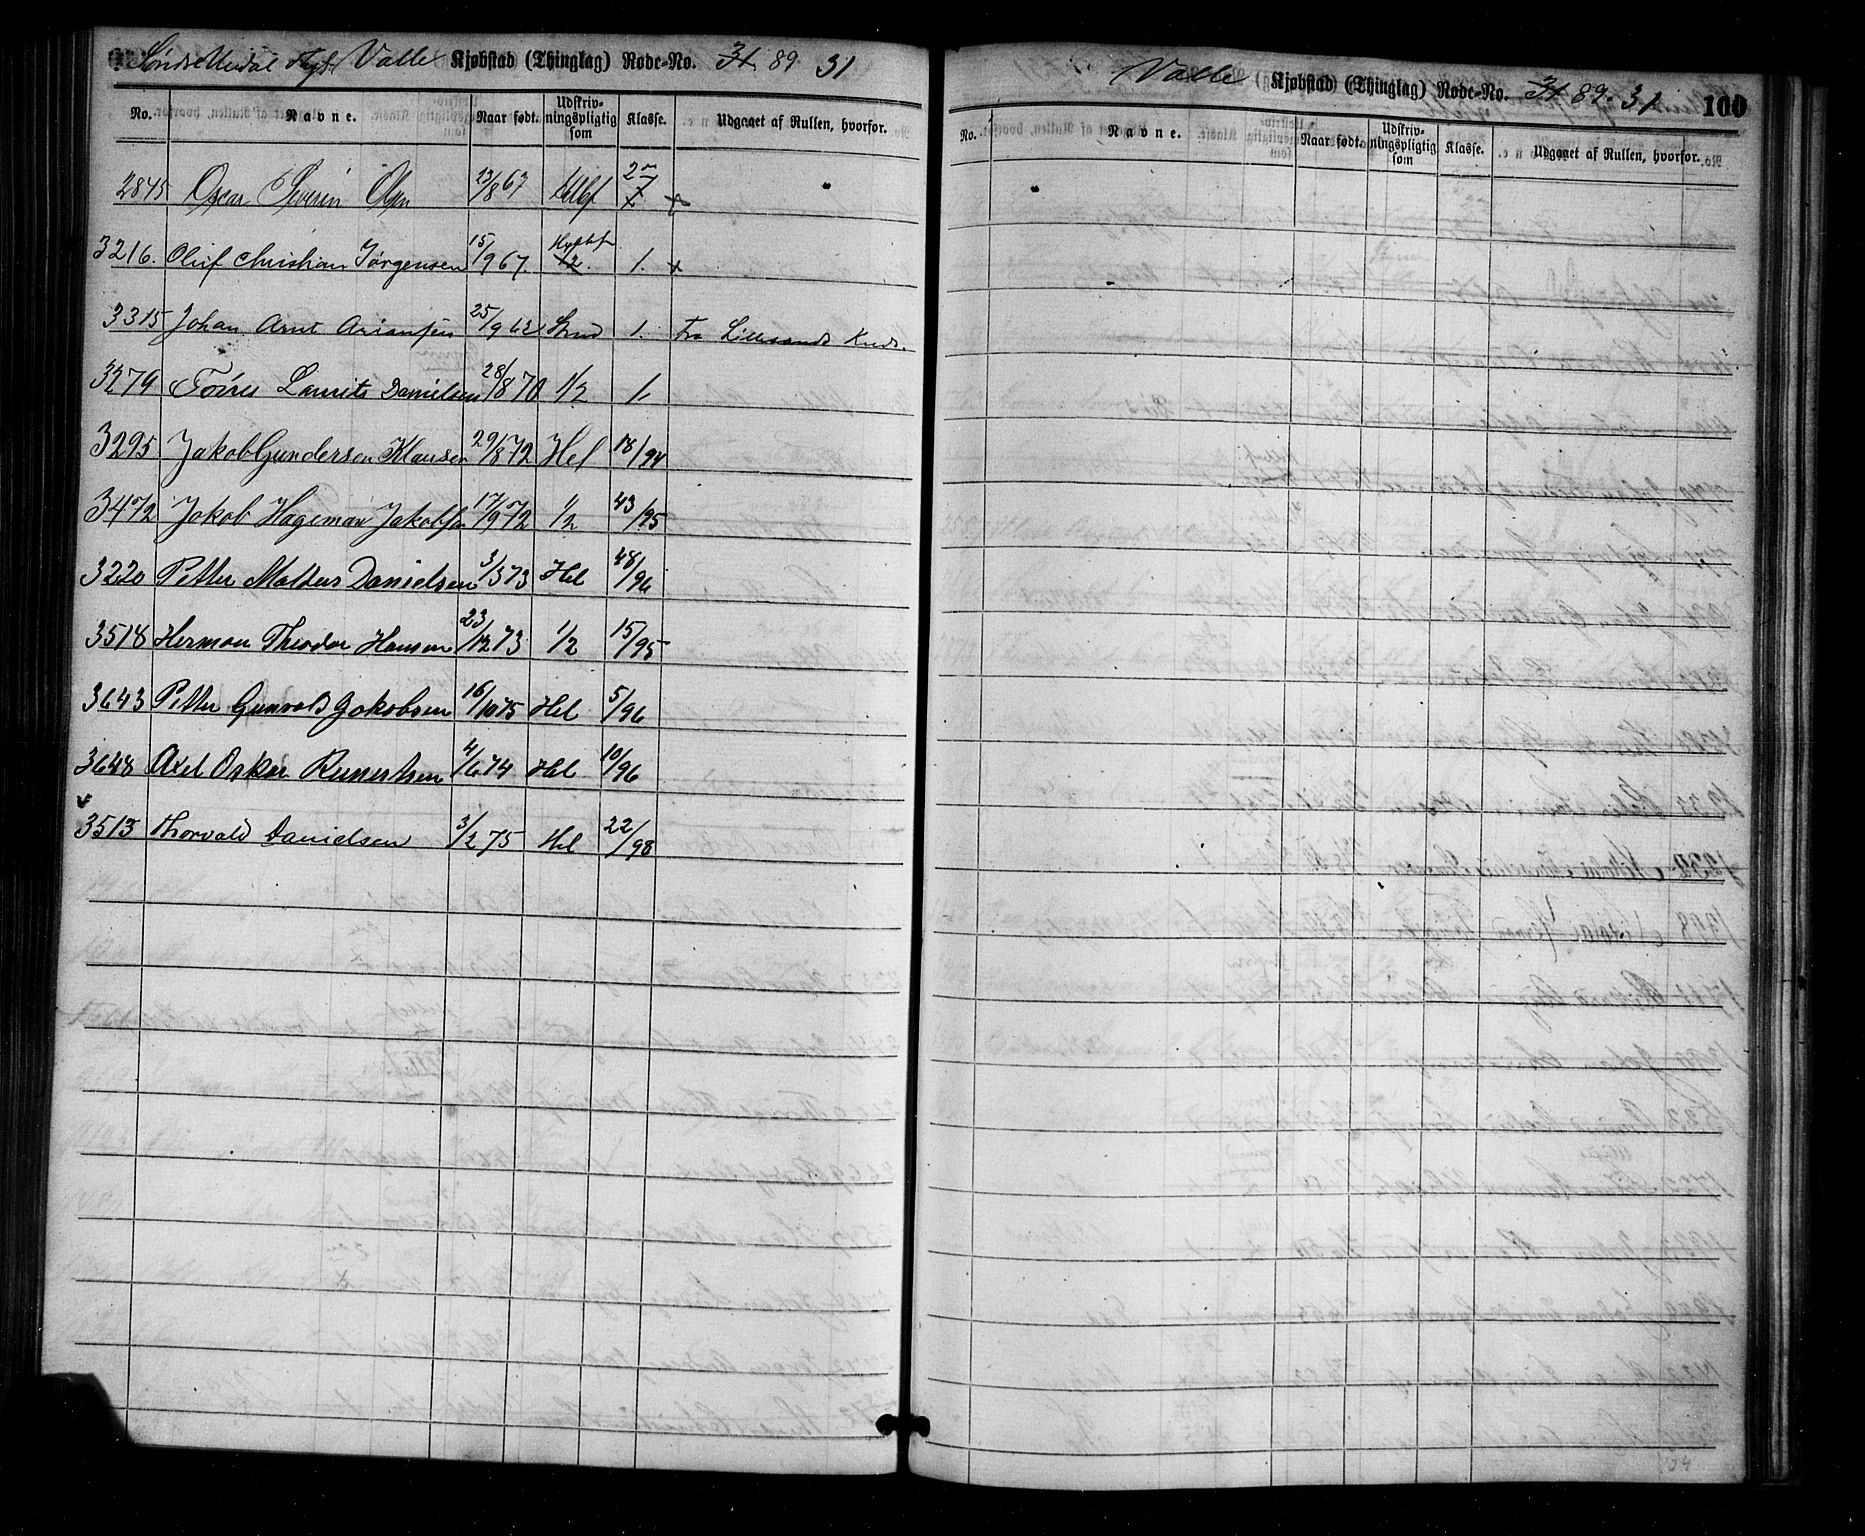 Søndre Undal Valle Kjøbstad (Thinglag) Rode-No. 31 89 31
No. Navne. Naar født. Udskrivningspligtig som Klasse. Udgaaet af Rullen, hvorfor.
2845 Oscar Severin Olsen 23/8 67 2 7 x
3216. Oluf Christian Jørgensen 15/9 67. 1/2. 1. x
3315 Johan Arnt Ariansen 25/9 62 1. Fra Lillesands Kreds.
3279 Lauritz Danielsen 28/8 70 1/2 1.
3295 Jakob Gundersen Klausen 29/8 72 Hel 18/94
3472 Jakob Hageman Jakobsen 17/9 72 1/2 43/95
3220 Petter Mateus Danielsen 3/3 73 Hel 48/96
3518 Herman Theodor Hansen 23/12 73 1/2 15/95
3643 Petter Gunvald Jakobsen 16/10 75 Hel 5/96
3648 Axel Oskar Reinertsen 4/6 74 Hel 10/96
3513 Thorvald Danielsen 3/2 75 Hel 22/98
Valle Kjøbstad (Thinglag) Rode-No. 31 89. 31 100
No. Navne. Naar født. Udskrivningspligtig som Klasse. Udgaaet af Rullen, hvorfor.